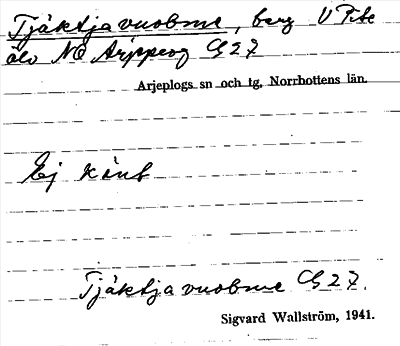 Tjäktjavuobme, berg V Pite
älv NO Arjeplog G 27
Arjeplogs sn och tg, Norrbottens län.
Ej känt
Tjäktjavuobme G 27.
Sigvard Wallström, 1941.